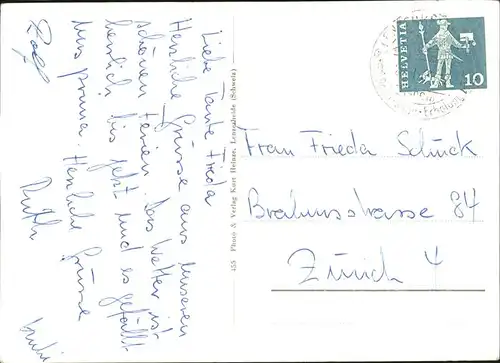 Liebe Tante Frieda
Herzliche Grüsse aus unseren
schönen Ferien. Das Wetter ist
herrlich bis jetzt und es gefällt
uns prima. Herzliche Grüsse
Rolf Ruth
455 Photo & Verlag Kurt Heiner, Lenzerheide (Schweiz)
HELVETIA
10
Frau Frieda Schuck
Brahmsstrasse 84
Zürich 4